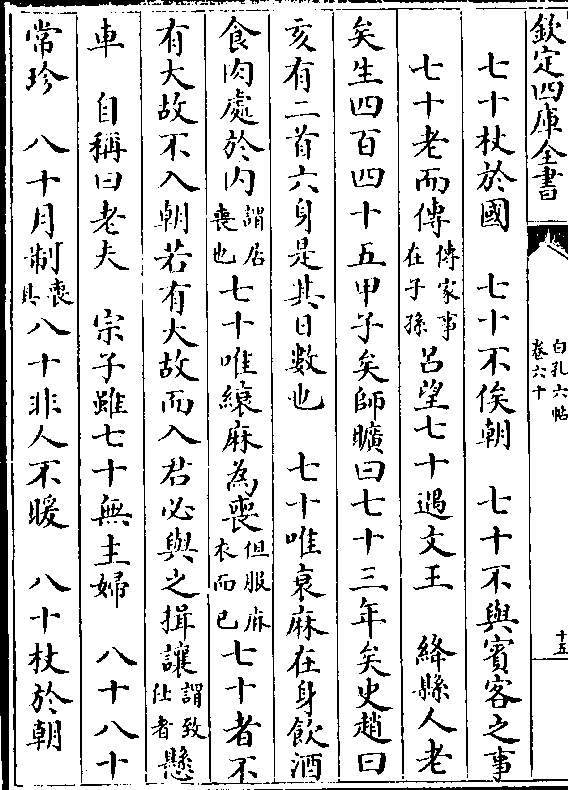 欽定四庫全書
白孔六帖
卷六十
十五
七十杖於國　七十不俟朝　七十不與賓客之事
七十老而傳傳家事在子孫　呂望七十遇文王　絳縣人老
矣生四百四十五甲子矣師曠曰七十三年矣史趙曰
亥有二首六身是其日數也　七十唯衰麻在身飲酒
食肉處於内謂居喪也　七十唯縗麻為喪但服麻衣而已　七十者不
有大故不入朝若有大故而入君必與之揖讓謂致仕者　懸
車　自稱曰老夫　宗子雖七十無主婦　八十八十
常珍　八十月制喪具　八十非人不暖　八十杖於朝